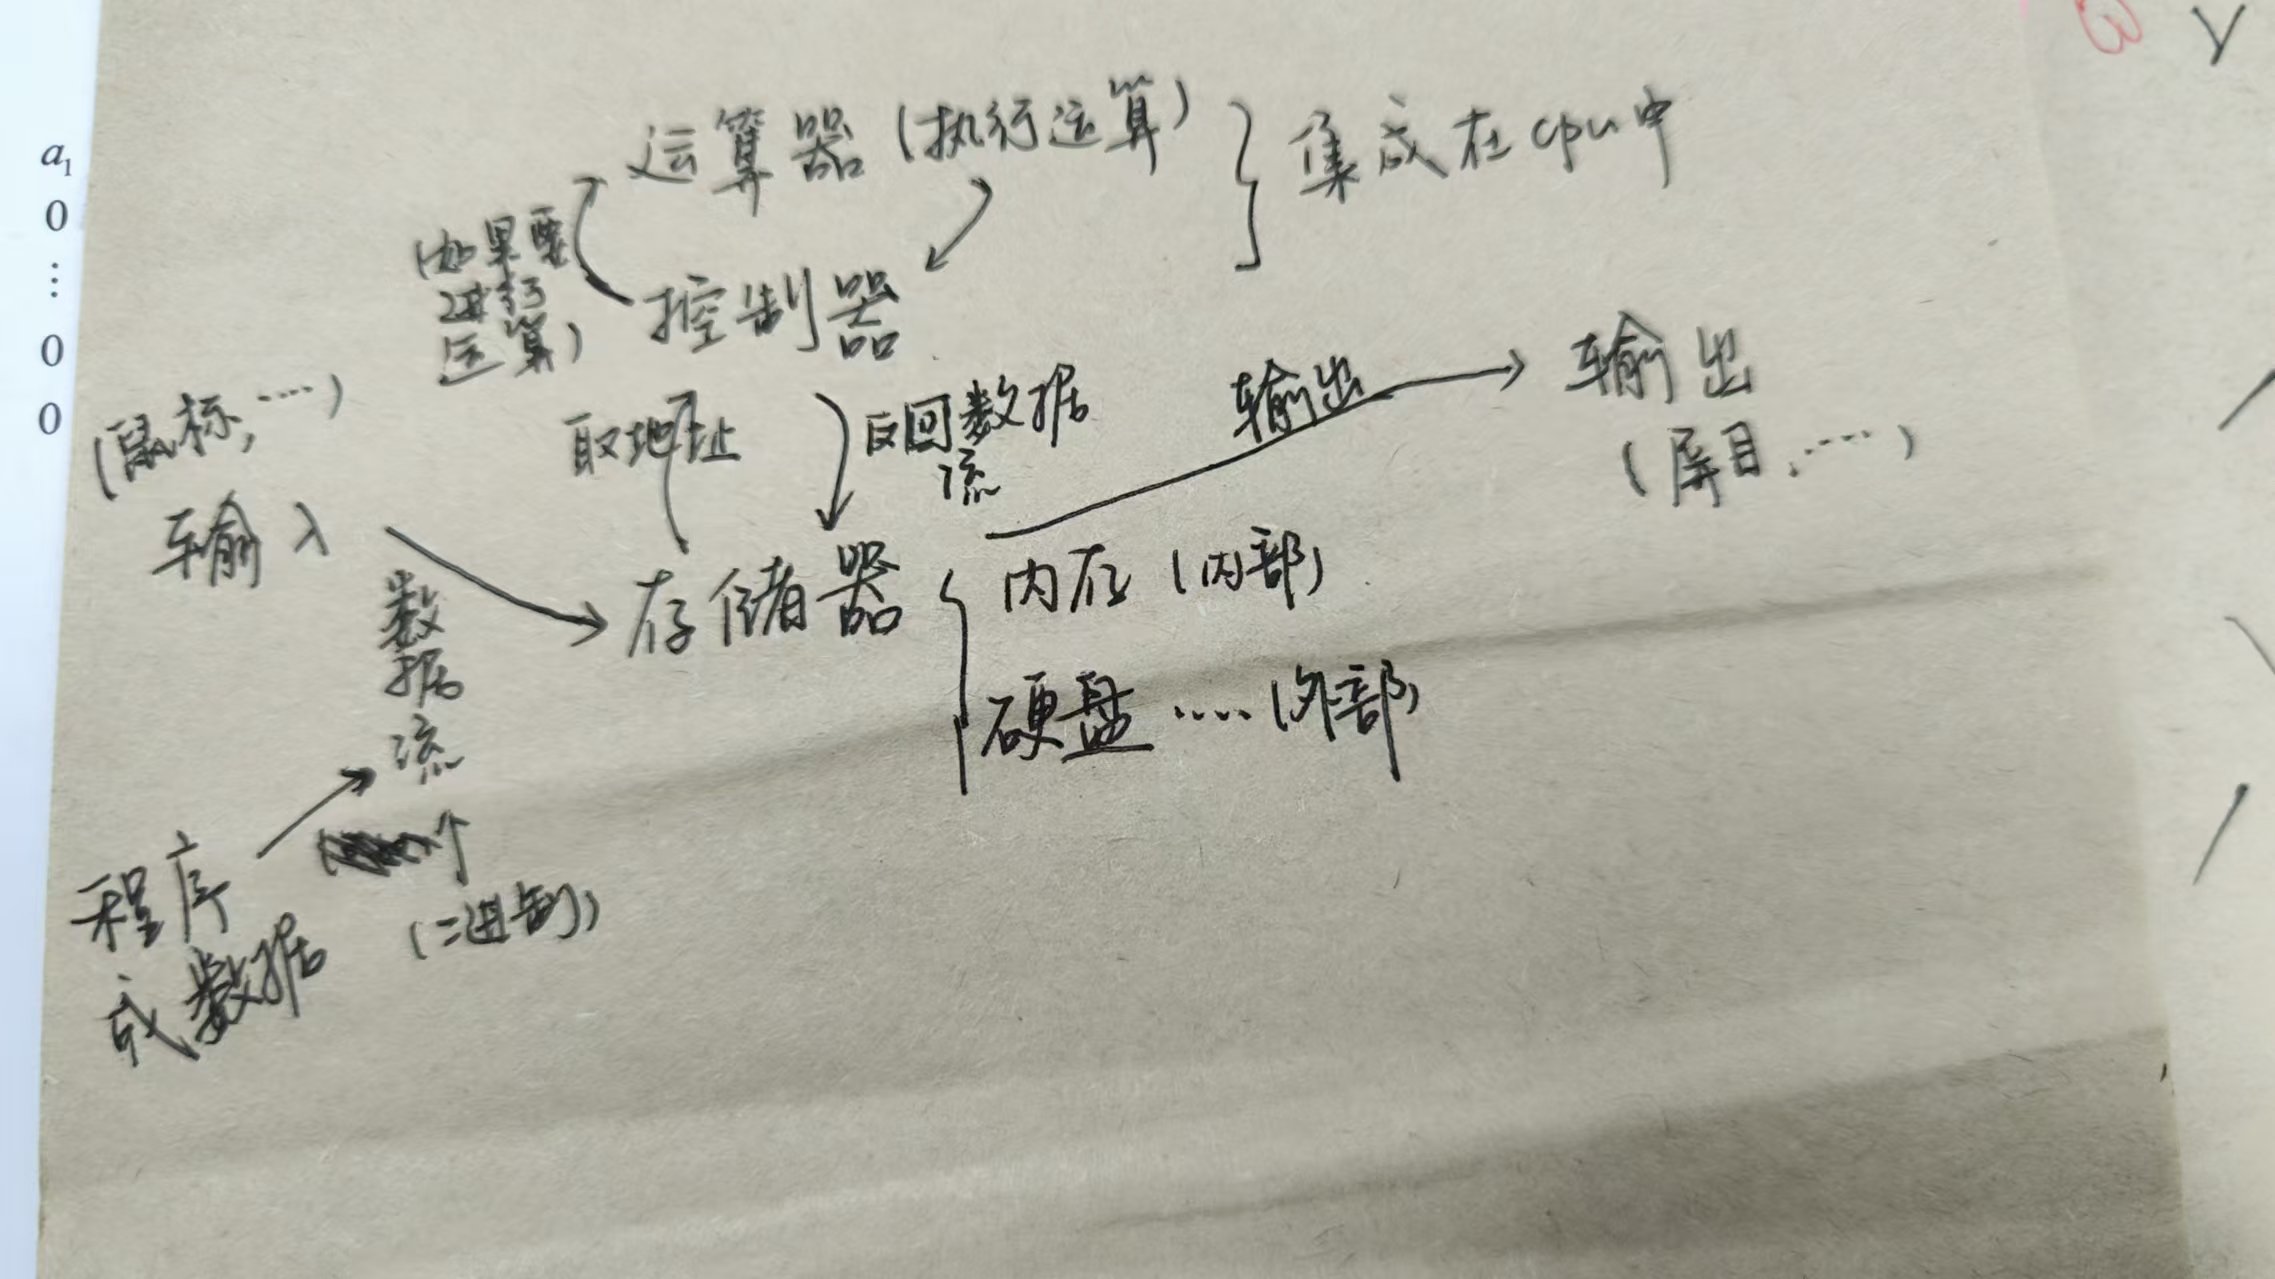 a₁
0
⋮
0
0
运算器（执行运算）
集成在cpu中
（如果要
进行
运算）
控制器
（鼠标，……）
输入
取地址
返回数据
流
输出
输出
（屏目，……）
数
据
流
存储器
内存（内部）
硬盘……（外部）
程序
或数据
（二进制）